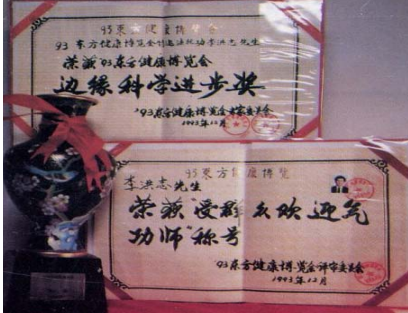 93东方健康博览会
93东方健康博览会创造法轮功李洪志先生
荣获'93东方健康博览会
边缘科学进步奖
'93东方健康博览会评审委员会
1993年12月
93东方健康博览
李洪志先生
荣获"受群众欢迎气
功师"称号
'93东方健康博览会评审委员会
1993年12月